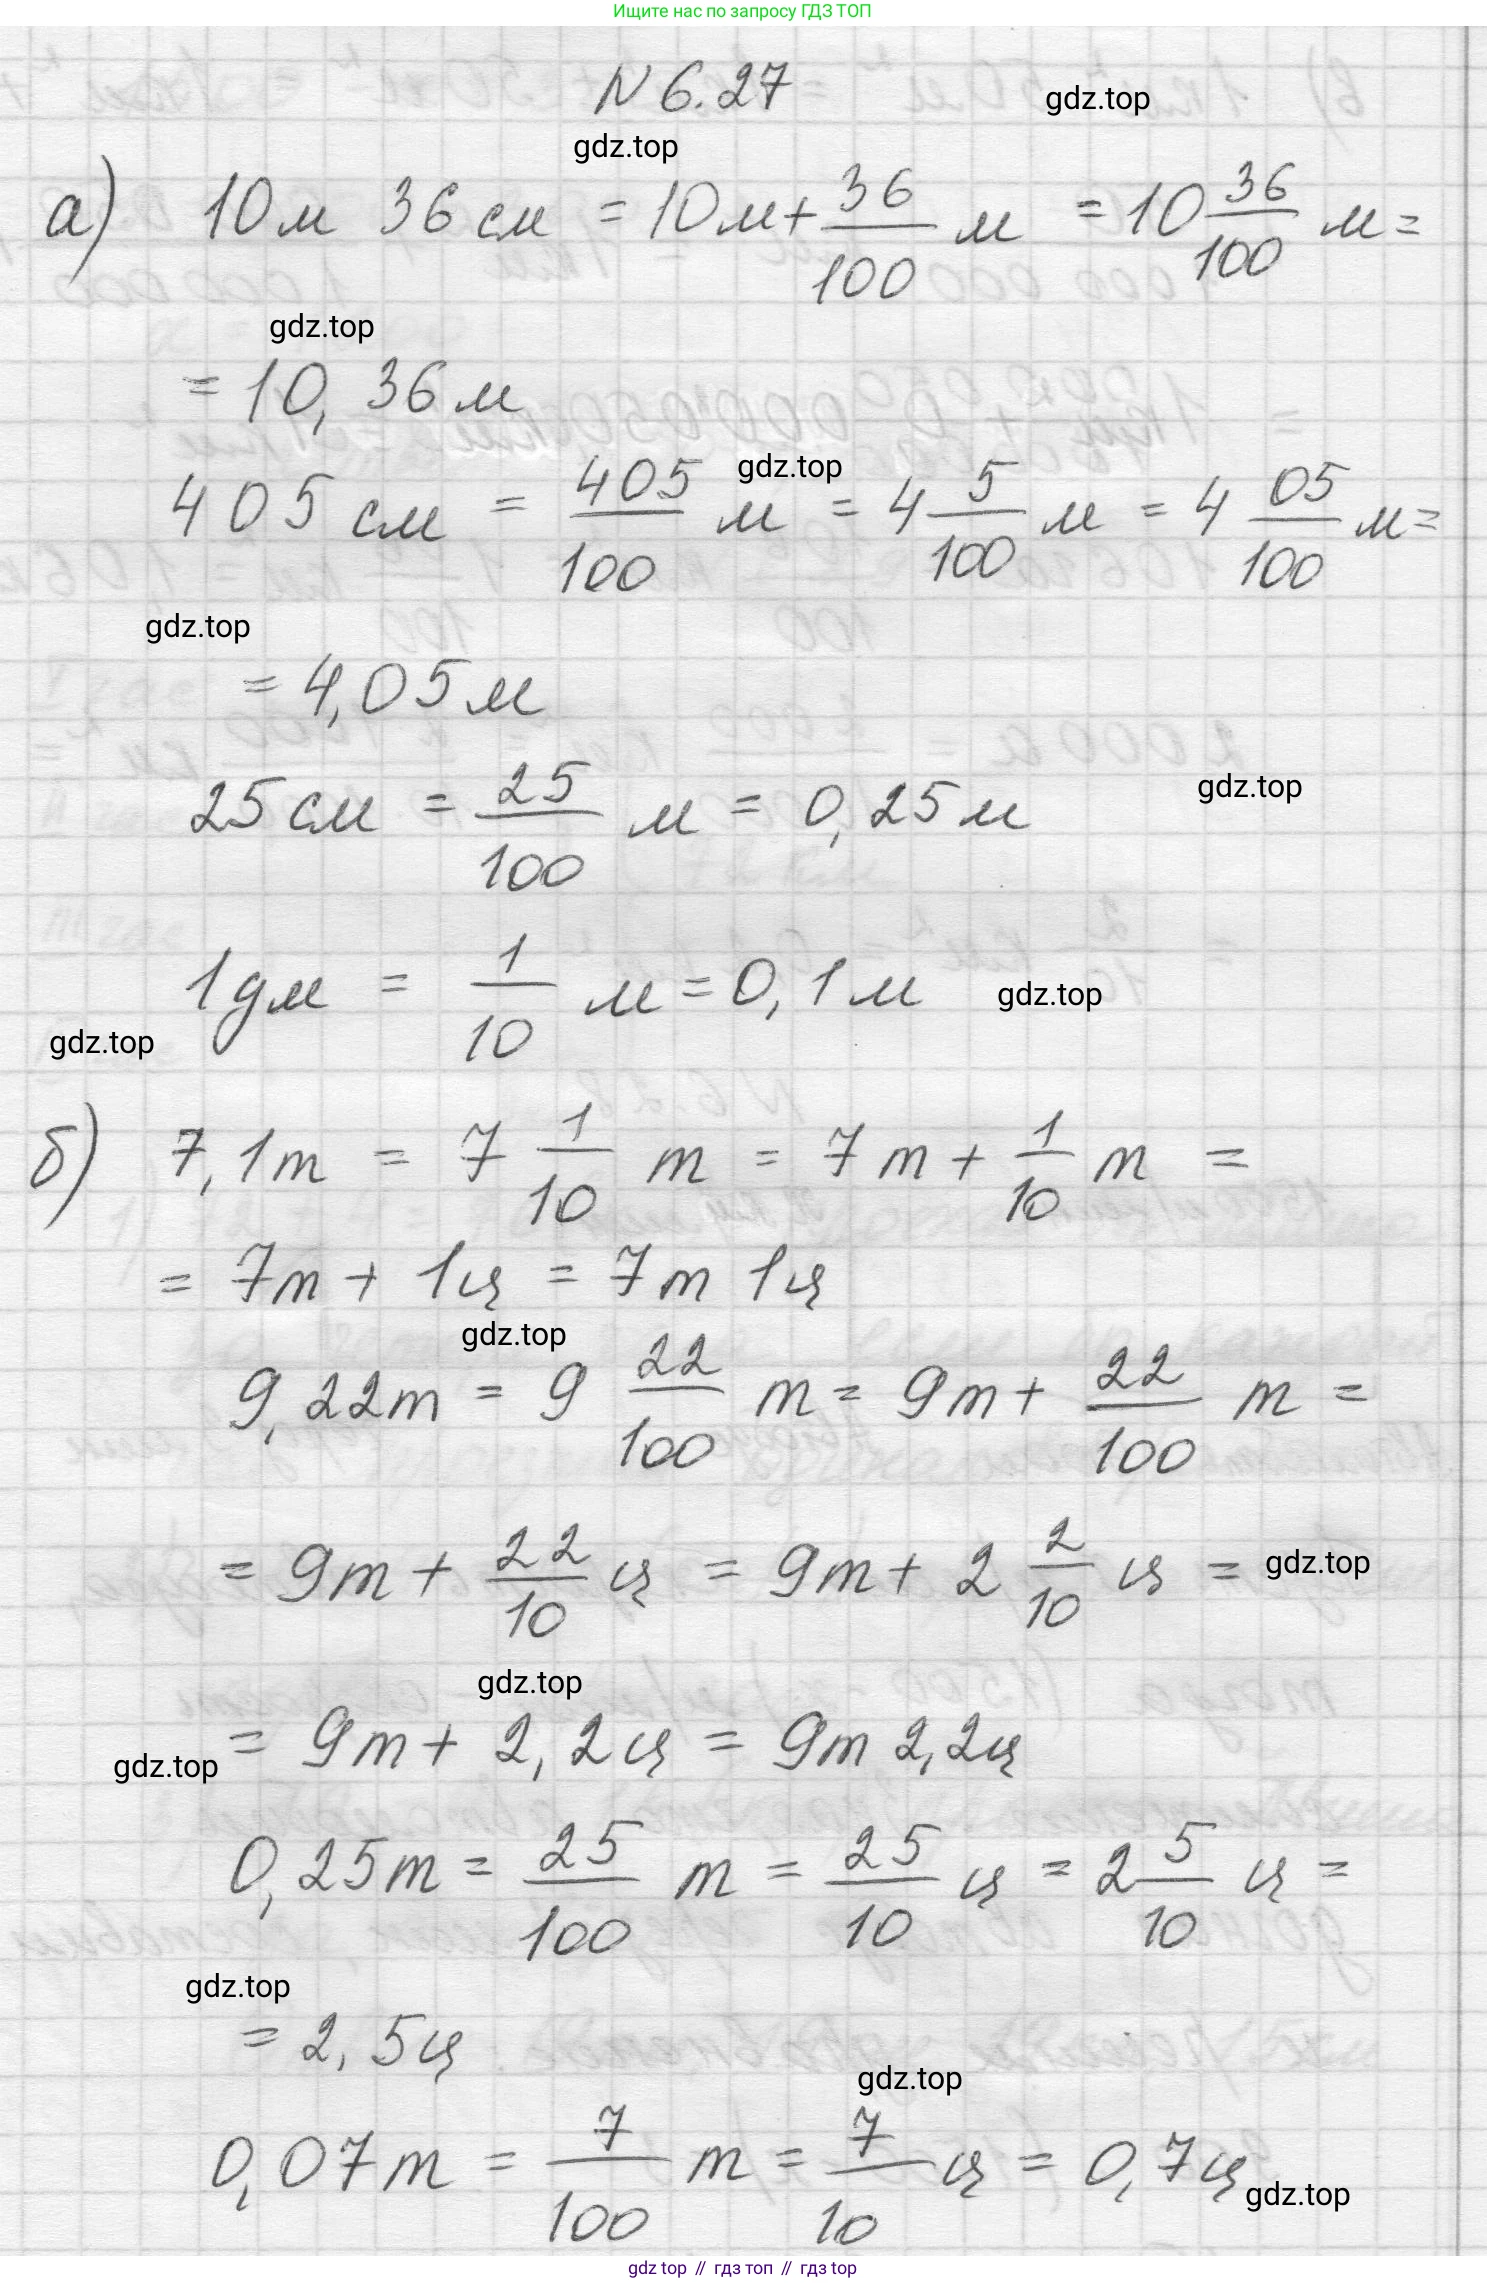 Ищите нас по запросу ГДЗ ТОП
N 6.27
gdz.top
gdz.top
а) 10м 36см = 10м + 36/100 м = 10 36/100 м =
gdz.top
= 10,36м
405 см = 405/100 м = 4 5/100 м = 4 05/100 м =
gdz.top
gdz.top
= 4,05м
25см = 25/100 м = 0,25м
gdz.top
1дм = 1/10 м = 0,1м
gdz.top
gdz.top
б) 7,1т = 7 1/10 т = 7т + 1/10 т =
= 7т + 1ц = 7т 1ц
gdz.top
9,22т = 9 22/100 т = 9т + 22/100 т =
= 9т + 22/10 ц = 9т + 2 2/10 ц =
gdz.top
gdz.top
= 9т + 2,2ц = 9т 2,2ц
gdz.top
0,25т = 25/100 т = 25/10 ц = 2 5/10 ц =
gdz.top
= 2,5ц
gdz.top
0,07т = 7/100 т = 7/10 ц = 0,7ц
gdz.top
gdz top // гдз топ // gdz.top